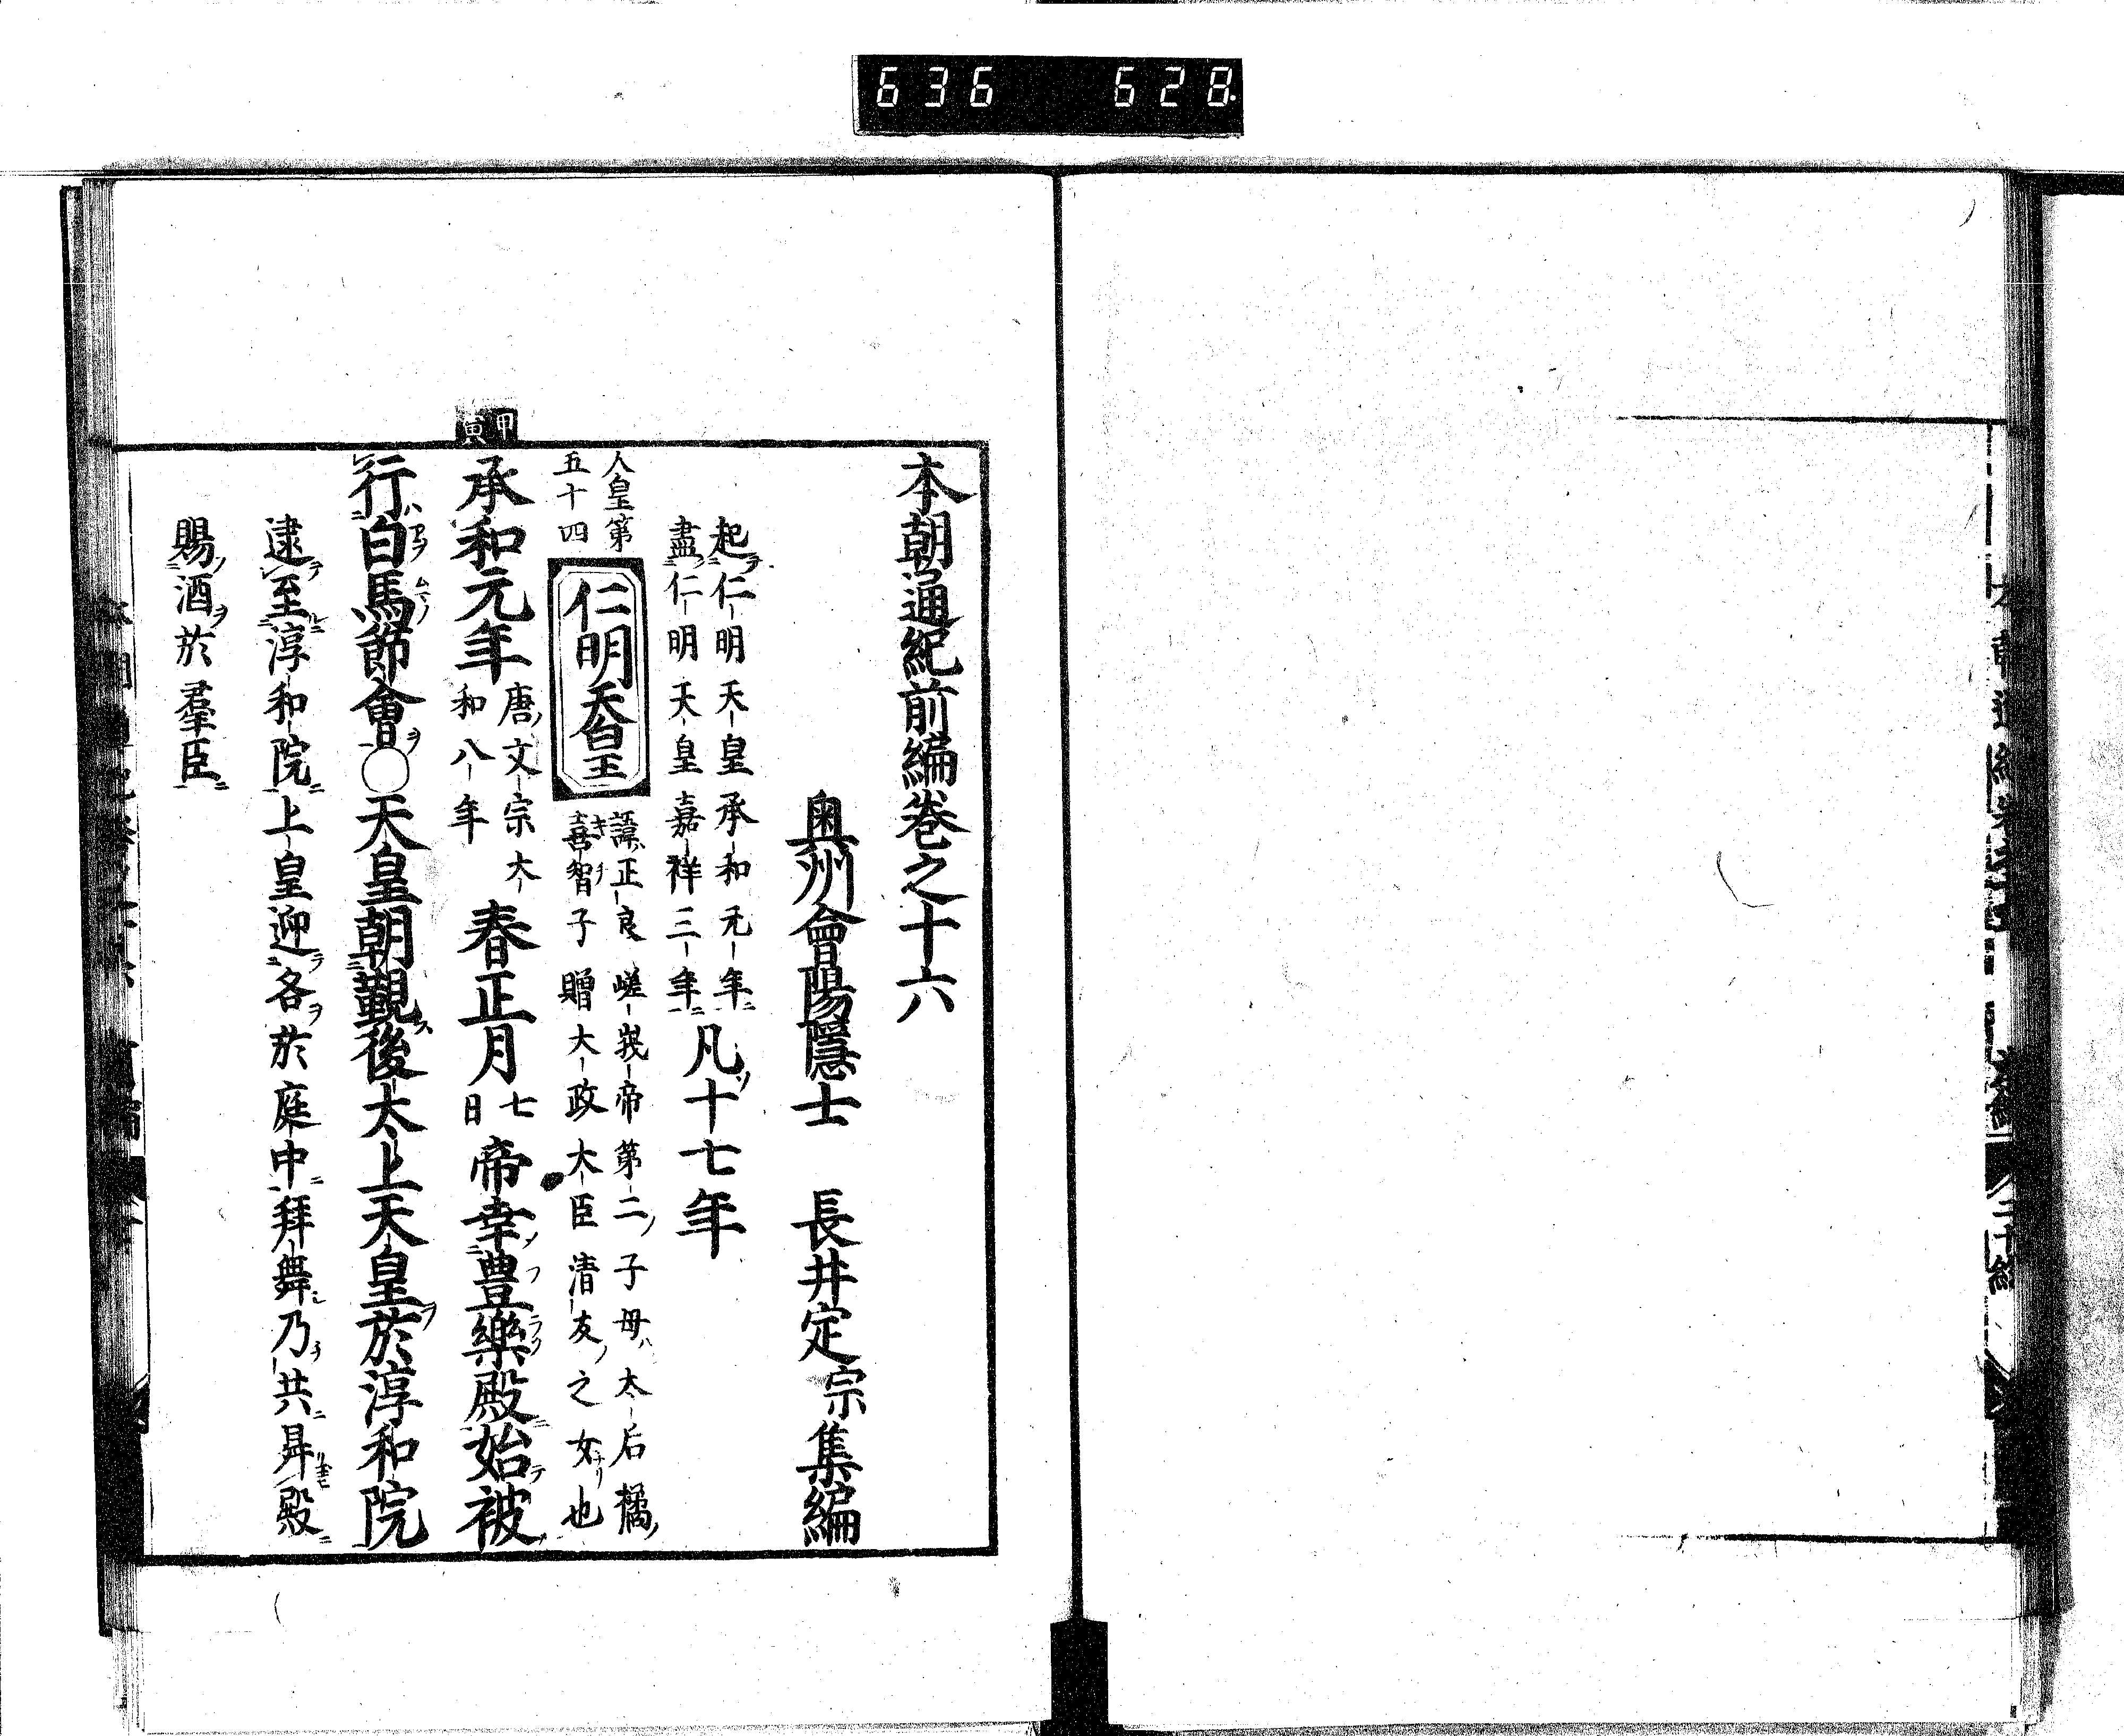 636 628.
本朝通紀前編卷之十六
奥州會陽隱士 長井定宗集編
起仁明天皇承和元年
盡仁明天皇嘉祥三年 凡十七年
人皇第
五十四
仁明天皇
諱正良嵯峩帝第二子母太后橘
喜智子贈大政大臣清友之女也
甲寅
承和元年
唐文宗大
和八年
春正月
七
日
帝幸豊樂殿始被
行白馬節會○天皇朝覲後太上天皇於淳和院
逮至淳和院上皇迎各於庭中拜舞乃共昇殿
賜酒於羣臣